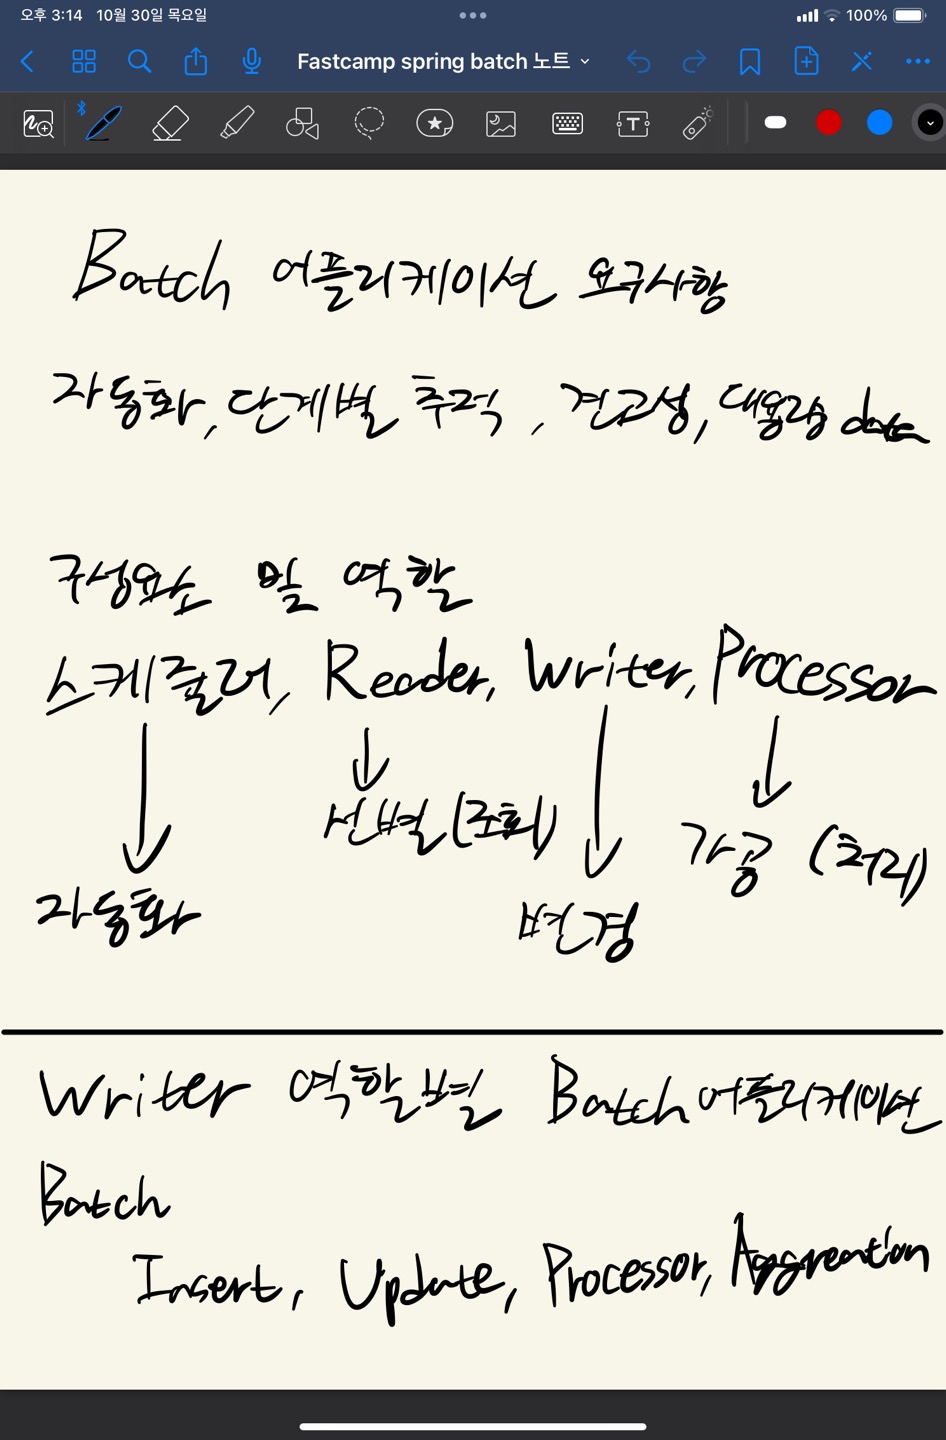 오후 3:14 10월 30일 목요일 100%
Fastcamp spring batch 노트
Batch 어플리케이션 요구사항
자동화, 단계별 추적, 견고성, 대용량 data
구성요소 및 역할
스케쥴러, Reader, Writer, Processor
선별(조회) 가공 (처리)
자동화 변경
Writer 역할별 Batch 어플리케이션
Batch
Insert, Update, Processor, Aggreation